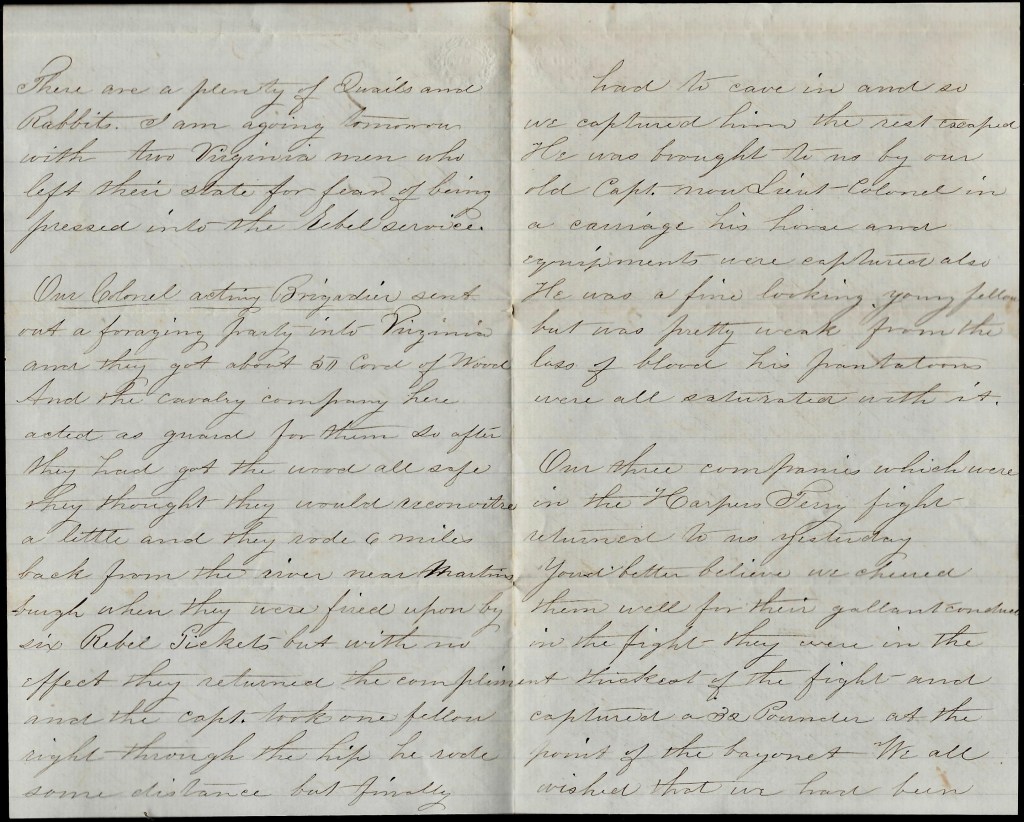 There are a plenty of Quails and
Rabbits. I am agoing tomorrow
with two Virginia men who
left their state for fear of being
pressed into the Rebel service.
Our Colonel acting Brigadier sent
out a foraging Party into Virginia
and they got about 50 Cord of Wood
And the cavalry company here
acted as guard for them so after
they had got the wood all safe
they thought they would reconoitre
a little and they rode 6 miles
back from the river near Martins
burgh when they were fired upon by
six Rebel Pickets but with no
effect they returned the compliment
and the Capt. took one fellow
right through the hip he rode
some distance but finally
had to cave in and so
we captured him the rest escaped
He was brought to us by our
old Capt. now Lieut-Colonel in
a carriage his horse and
equipments were captured also
He was a fine looking young fellow
but was pretty weak from the
loss of blood his pantaloons
were all saturated with it.
Our three companies which were
in the Harpers Ferry fight
returned to us yesterday
Youd better believe we cheered
them well for their gallant conduct
in the fight they were in the
thickest of the fight and
captured a 32 Pounder at the
point of the bayonet We all
wished that we had been